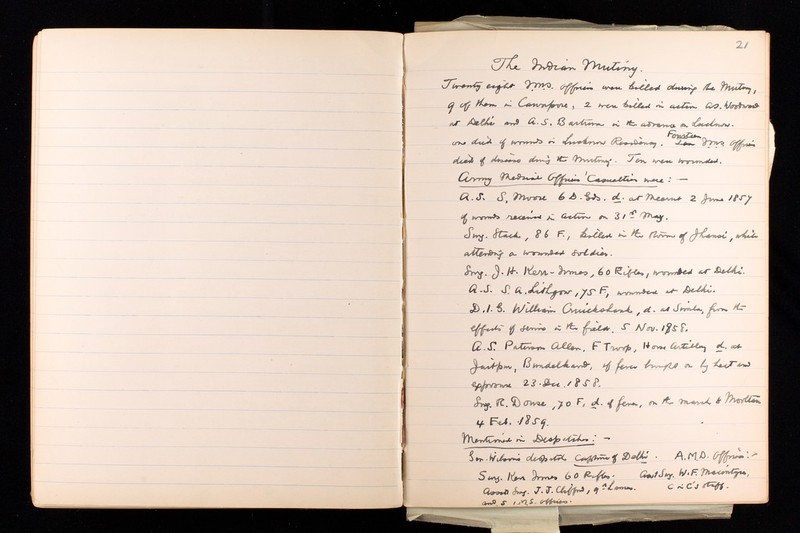 21
The Indian Mutiny.
Twenty eight I.M.S. officers were killed during the Mutiny,
9 of them in Cawnpore, 2 were killed in action A.S. Woodward
at Delhi and A.S. Bartrum in the advance on Lucknow.
one died of wounds in Lucknow Residency. Fourteen I.M.S. officers
died of disease during the Mutiny. Ten were wounded.
Army Medical Officers' Casualties were: —
A.S. S. Moore 6 D. Gds. d. at Meerut 2 June 1857
of wounds received in action on 31st May.
Surg. Stack, 86 F., killed in the storm of Jhansi, while
attending a wounded soldier.
Surg. J. H. Kerr-Innes, 60 Rifles, wounded at Delhi.
A.S. S. A. Lithgow, 75 F, wounded at Delhi.
D.I.G. William Cruickshank, d. at Simla, from the
effects of service in the field, 5 Nov. 1858.
A.S. Paterson Allan, F Troop, Horse Artillery d. at
Bundelkand, of fever brought on by heat and
exposure 23 Dec. 1858.
Surg. R. Dowse, 70 F, d. of fever, on the march to Mooltan
4 Feb. 1859.
Mentioned in Despatches: —
Gen. Wilson's despatch Capture of Delhi. A.M.D. Officers: -
Surg. Kerr Innes 60 Rifles. Asst Surg. W. F. Macintyre,
Assist Surg. J. J. Clifford, 9th Lancers. C in C's Staff.
and 5 I.M.S. officers.